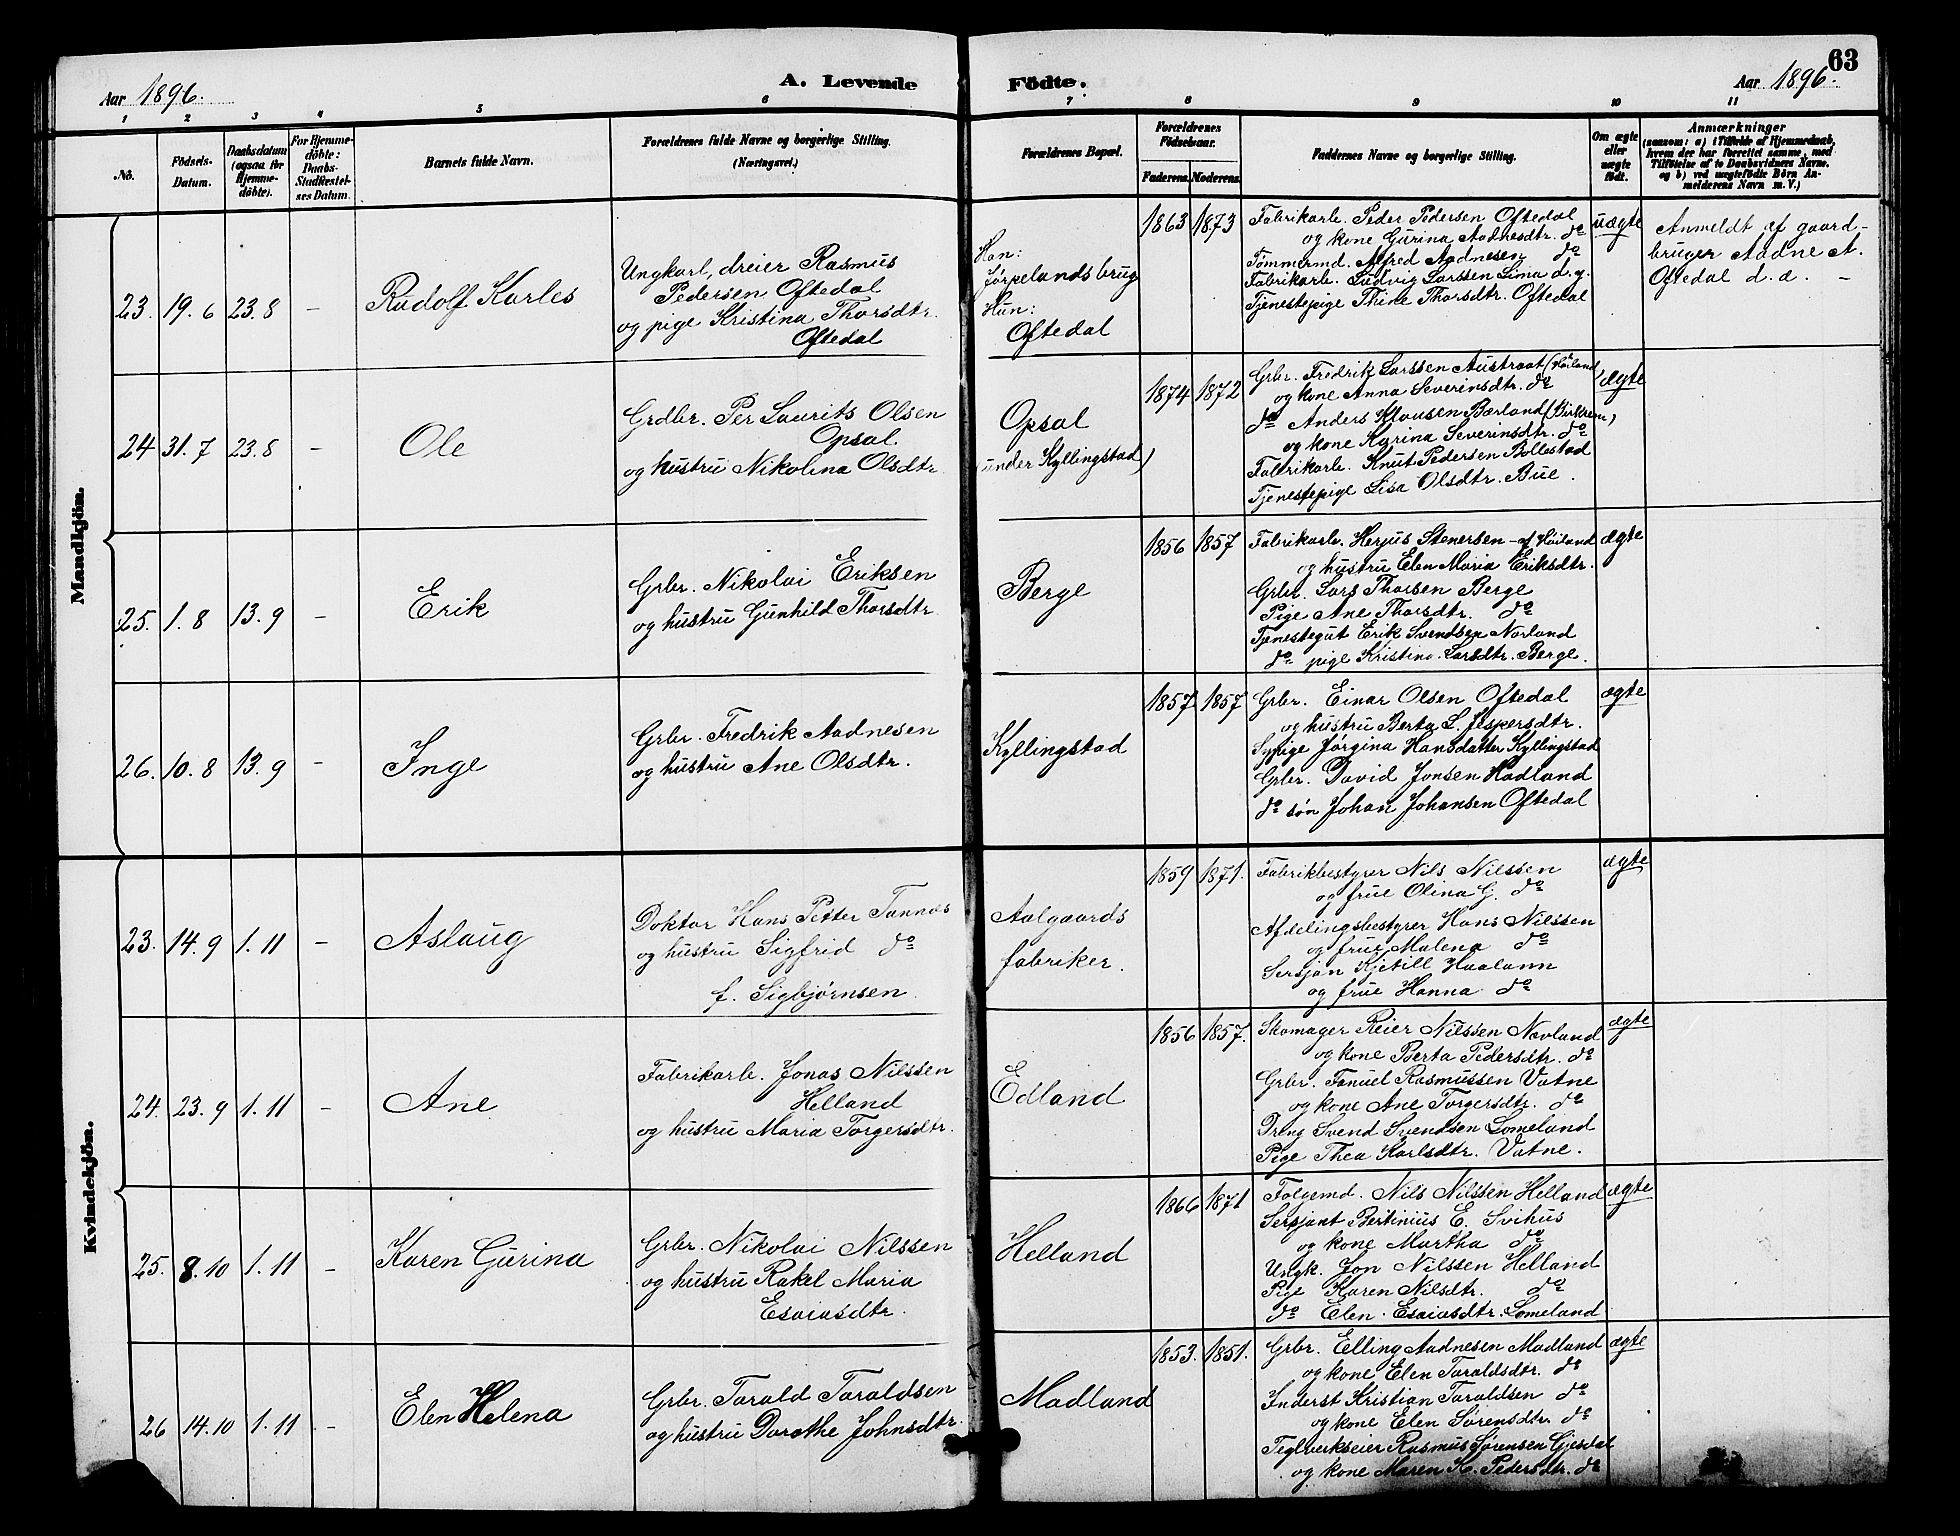 63
Aar 1896.
A. Levende
Födte.
Aar 1896.
1 2 3 4 5 6 7 8 9 10 11
No.
Födsels-
Datum.
Daabsdatum
(ogsaa for
Hjemme-
döbte).
For Hjemme-
döbte:
Daabs-
Stadfæstel-
ses Datum.
Barnets fulde Navn.
Forældrenes fulde Navne og borgerlige Stilling.
(Næringsvei.)
Forældrenes Bopæl.
Forældrenes
Födselsaar.
Faderens. Moderens.
Faddernes Navne og borgerlige Stilling.
Om ægte
eller
uægte
født.
Anmærkninger
(saasom: a) i Tilfælde af Hjemmedaab,
hvem der har forrettet samme, med
Tilföielse af to Daabsvidners Navne.
og b) ved uægtefödte Börn An-
melderens Navn m. V.)
Mandkjön.
23. 19.6 23.8 –
Rudolf Karles
Ungkarl, dreier Rasmus
Pedersen Oftedal
og pige Kristina Thorsdtr.
Oftedal
Han:
Jørpelandsbrug
Hun:
Oftedal
1863 1873
Fabrikarb. Peder Pedersen Oftedal
og kone Gurina Aadnesdtr. do
Tømmermd. Alfred Aadnesen do
Fabrikarb. Ludvig Larssen Lima d.y.
Tjenestepige Thine Thorsdtr. Oftedal
uægte
Anmeldt af gaard-
bruger Aadne A.
Oftedal d.a. –
24 31.7 23.8 –
Ole
Grdbr. Per Laurits Olsen
Opsal
og hustru Nikolina Olsdtr.
Opsal
(under Kyllingstad)
1874 1872
Grbr. Fredrik Larssen Austraat (Høiland)
og kone Anna Severinsdtr. do
do Anders Klausen Bærland (Birkrem)
og kone Karina Severinsdtr. do
Fabrikarb. Knut Pedersen Bollestad
Tjenestepige Lisa Olsdtr. Bue.
ægte
25. 1.8 13.9 –
Erik
Grbr. Nikolai Eriksen
og hustru Gunhild Thorsdtr.
Berge
1856 1857
Fabrikarb. Herjus Stenersen – af Høiland
og hustru Elen Maria Eriksdtr.
Grbr. Lars Thorsen Berge
Pige Ane Thorsdtr. do
Tjenestegut Erik Svendsen Norland
do pige Kristina Larsdtr. Berge.
ægte
26. 10.8 13.9 –
Inge
Grbr. Fredrik Aadnesen
og hustru Ane Olsdtr.
Kyllingstad
1857 1857
Grbr. Einar Olsen Oftedal
og hustru Berta L. Jespersdtr.
Sypige Jørgina Hansdatter Kyllingstad
Grbr. David Jonsen Hadland
do søn Johan Johansen Oftedal
ægte
Kvindekjön.
23. 14.9 1.11 –
Aslaug
Doktor Hans Petter Tannæs
og hustru Sigfrid do
f. Sigbjørnsen.
Aalgaards
fabriker.
1859 1871.
Fabrikbestyrer Nils Nilssen
og frue Olina G. do
Afdelingsbestyrer Hans Nilssen
og frue Malena do
Sersjan Kjetill Haalann
og frue Hanna do
ægte
24. 23.9 1.11 –
Ane
Fabrikarb. Jonas Nilssen
Helland
og hustru Maria Torgersdtr.
Edland
1856 1857.
Skomager Reier Nilssen Nevland
og kone Berta Pedersdtr. do
Grbr. Tanuel Rasmussen Vatne
og kone Ane Torgersdtr. do
Dreng Svend Svendsen Lomeland
Pige Thea Karlsdtr. Vatne.
ægte
25. 8.10 1.11 –
Karen Gurina
Grbr. Nikolai Nilssen
og hustru Rakel Maria
Esaiasdtr.
Helland
1866 1871
Folgemd. Nils Nilssen Helland
Sersjant Bertinius E. Svihus
og kone Martha do
Ungk. Jon Nilssen Helland
Pige Karen Nilsdtr. do
do Elen Esaiasdtr. Lomeland
ægte
26 14.10 1.11 –
Elen Helena
Grbr. Tarald Taraldsen
og hustru Dorothe Johnsdtr.
Madland
1853. 1851.
Grbr. Elling Aadnesen Madland
og kone Elen Taraldsdtr. do
Inderst Kristian Taraldsen do
og kone Elen Sørensdtr. do
Teglverkseier Rasmus Sørensen Gjesdal
og kone Maren K. Pedersdtr. do
ægte